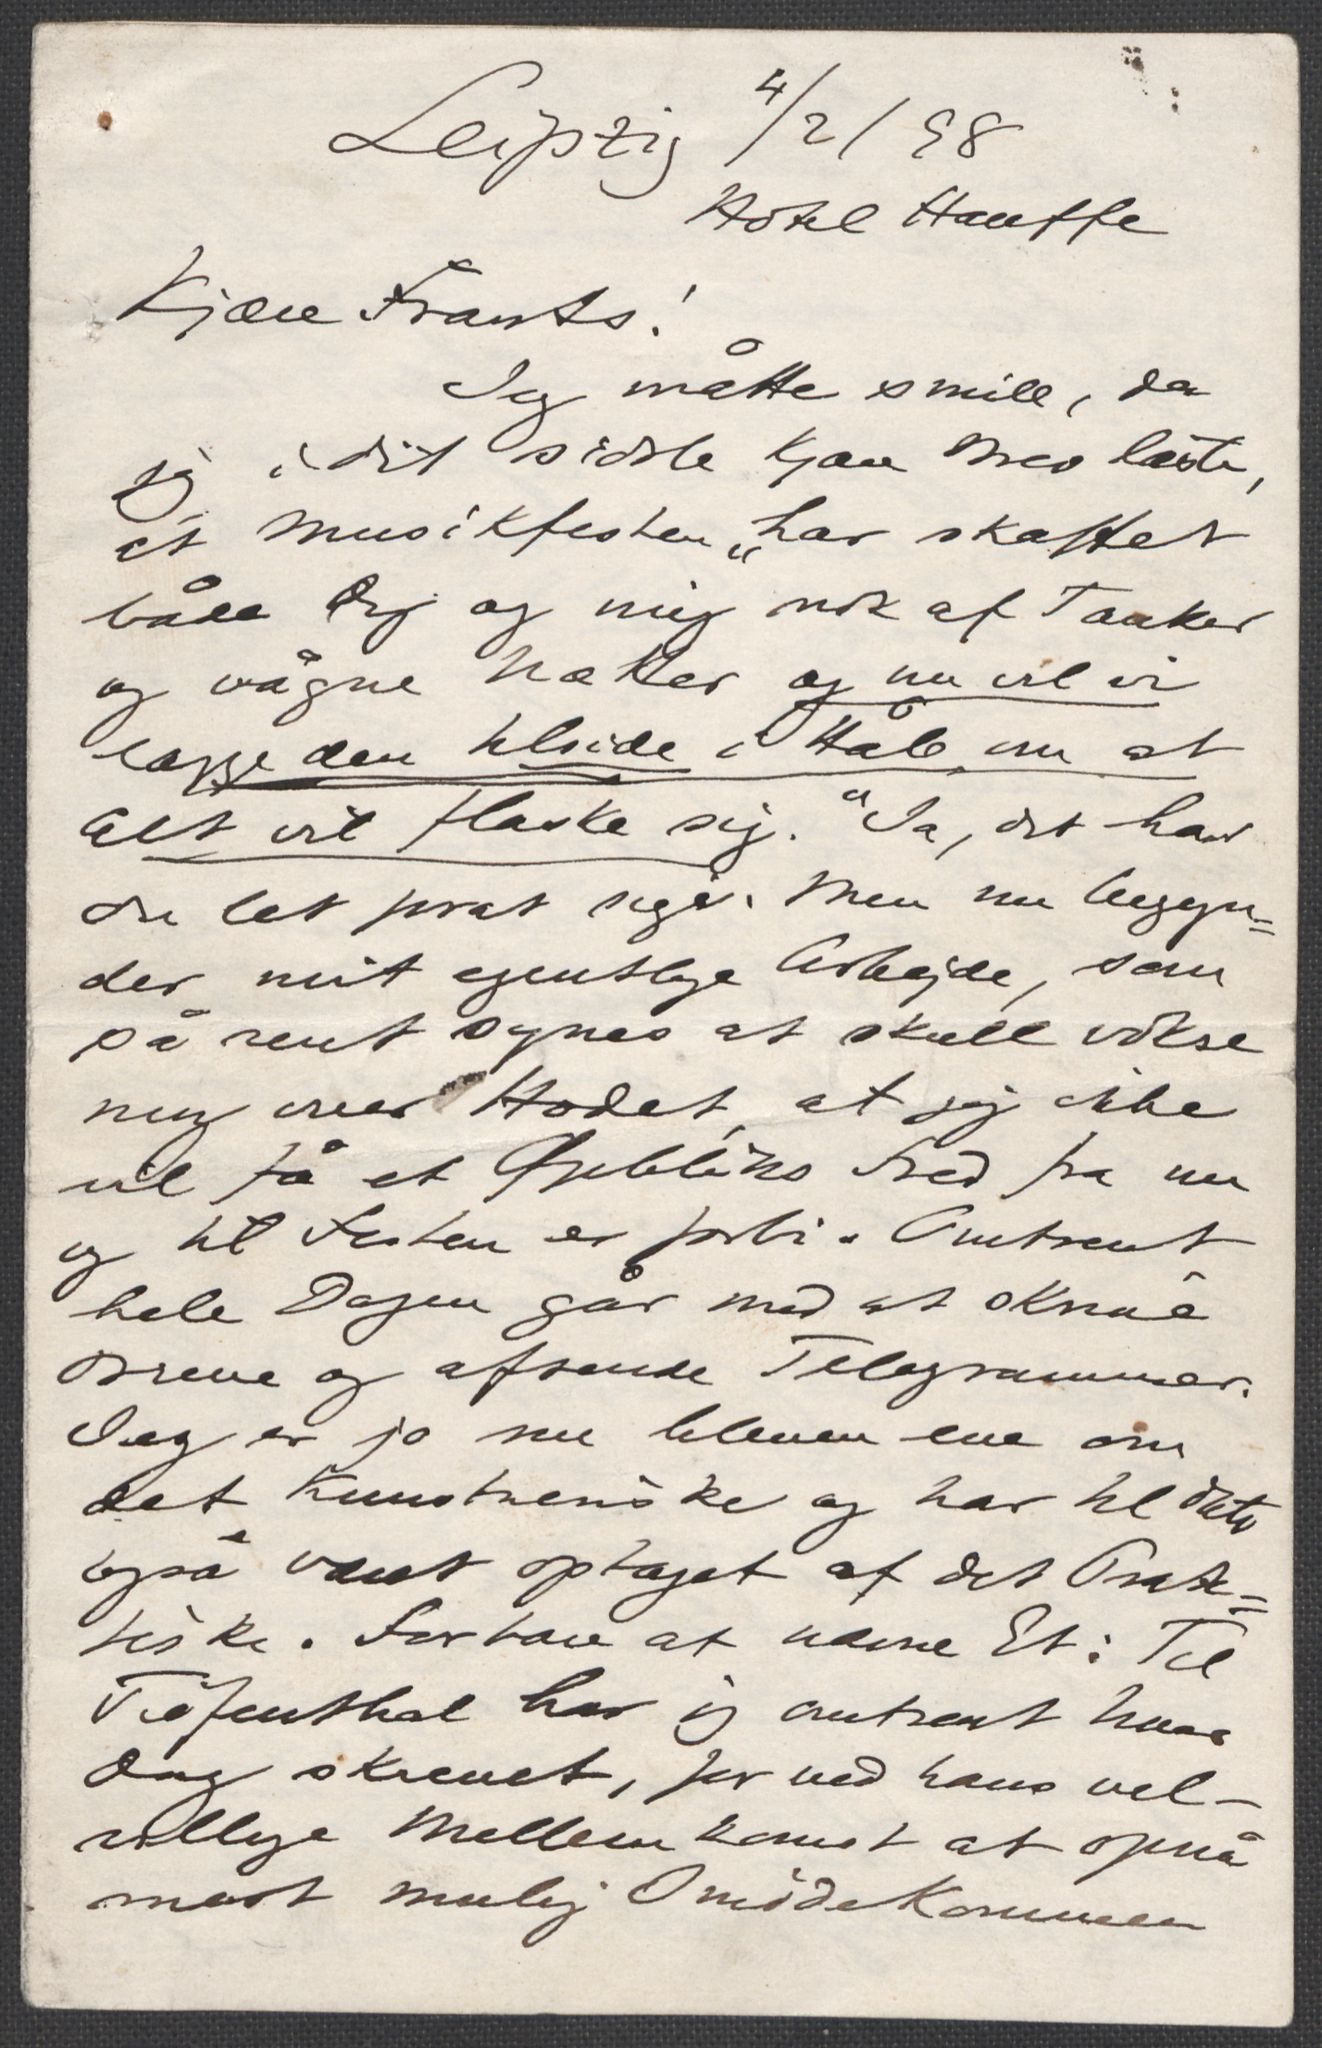 Leipzig 4/2/98
Hotel Hauffe
Kjære Frants!
Jeg måtte smile, da
jeg i dit sidste kjære Brev læste,
at Musikfesten „har skaffet
både Dig og mig nok af Tanker
og vågne Nætter og nu vil vi
lægge den tilside i Håb om at
Alt vil flaske sig.“ Ja, det har
du let for at sige. Men nu begyn=
der mit egentlige Arbejde, som
så rent synes at skulle vokse
mig over Hodet, at jeg ikke
vil få et Øjebliks Fred fra nu
og til Festen er forbi. Omtrent
hele Dagen går med at skrive
Breve og afsende Telegrammer.
Jeg er jo nu bleven ene om
det Kunstneriske og har til Dato
også været optaget af det Prak=
tiske. For bare at nævne Et: Til
Tiefenthal har jeg omtrent hver
Dag skrevet, for ved hans vel-
villige Mellemkomst at opnå
mest mulig Imødekommen